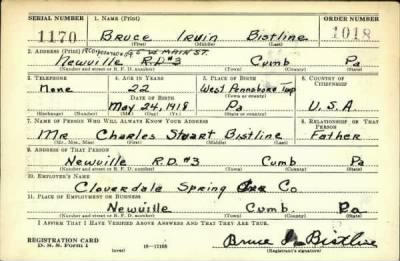 SERIAL NUMBER 1. NAME (Print) ORDER NUMBER
1170 BRUCE Irvin Bistline 1018
(First) (Middle) (Last)
2. ADDRESS (Print) W MAIN ST.
Newville R.D.#3 Cumb Pa
(Number and street or R. F. D. number) (Town) (County) (State)
3. TELEPHONE 4. AGE IN YEARS 5. PLACE OF BIRTH 6. COUNTRY OF CITIZENSHIP
None 22 West Pennsboro Twp
DATE OF BIRTH (Town or county)
May 24, 1918 Pa U.S.A
(Exchange) (Number) (Mo.) (Day) (Yr.) (State or country)
7. NAME OF PERSON WHO WILL ALWAYS KNOW YOUR ADDRESS 8. RELATIONSHIP OF THAT PERSON
Mr Charles Stuart Bistline Father
(Mr., Mrs., Miss) (First) (Middle) (Last)
9. ADDRESS OF THAT PERSON
Newville R.D. #3 Cumb Pa
(Number and street or R. F. D. number) (Town) (County) (State)
10. EMPLOYER'S NAME
Cloverdale Spring Co
11. PLACE OF EMPLOYMENT OR BUSINESS
Newville Cumb. Pa
(Number and street or R. F. D. number) (Town) (County) (State)
I AFFIRM THAT I HAVE VERIFIED ABOVE ANSWERS AND THAT THEY ARE TRUE.
REGISTRATION CARD
D. S. S. Form 1 (over) 16—17105 Bruce I Bistline
(Registrant's signature)